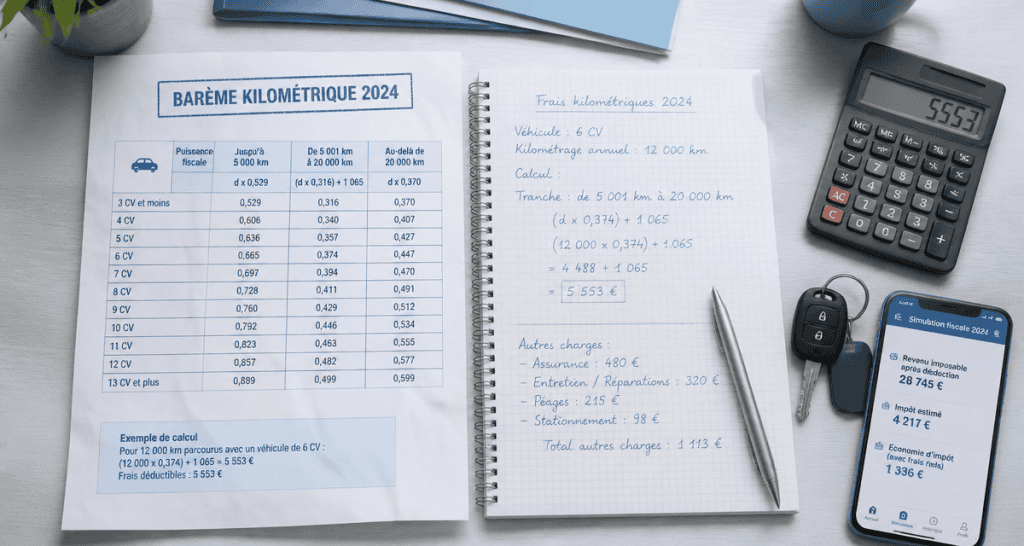 BARÈME KILOMÉTRIQUE 2024
Puissance fiscale Jusqu'à 5 000 km De 5 001 km à 20 000 km Au-delà de 20 000 km
d x 0,529 (d x 0,316) + 1 065 d x 0,370
3 CV et moins 0,529 0,316 0,370
4 CV 0,606 0,340 0,407
5 CV 0,636 0,357 0,427
6 CV 0,665 0,374 0,447
7 CV 0,697 0,394 0,470
8 CV 0,728 0,411 0,491
9 CV 0,760 0,429 0,512
10 CV 0,792 0,446 0,534
11 CV 0,823 0,463 0,555
12 CV 0,857 0,482 0,577
13 CV et plus 0,889 0,499 0,599
Exemple de calcul
Pour 12 000 km parcourus avec un véhicule de 6 CV :
(12 000 x 0,374) + 1 065 = 5 553 €
Frais déductibles : 5 553 €
Frais kilométriques 2024
Véhicule : 6 CV
Kilométrage annuel : 12 000 km
Calcul :
Tranche : de 5 001 km à 20 000 km
(d x 0,374) + 1 065
(12 000 x 0,374) + 1 065
= 4 488 + 1 065
= 5 553 €
Autres charges :
- Assurance : 480 €
- Entretien / Réparations : 320 €
- Péages : 215 €
- Stationnement : 98 €
Total autres charges : 1 113 €
5553
MC
7 8
4 5 6
AC 1 2 3
C 0
+
Simulation fiscale 2024
Revenu imposable
après déduction
28 745 €
Impôt estimé
4 217 €
Economie d'impôt
(avec frais réels)
1 336 €
Simulation